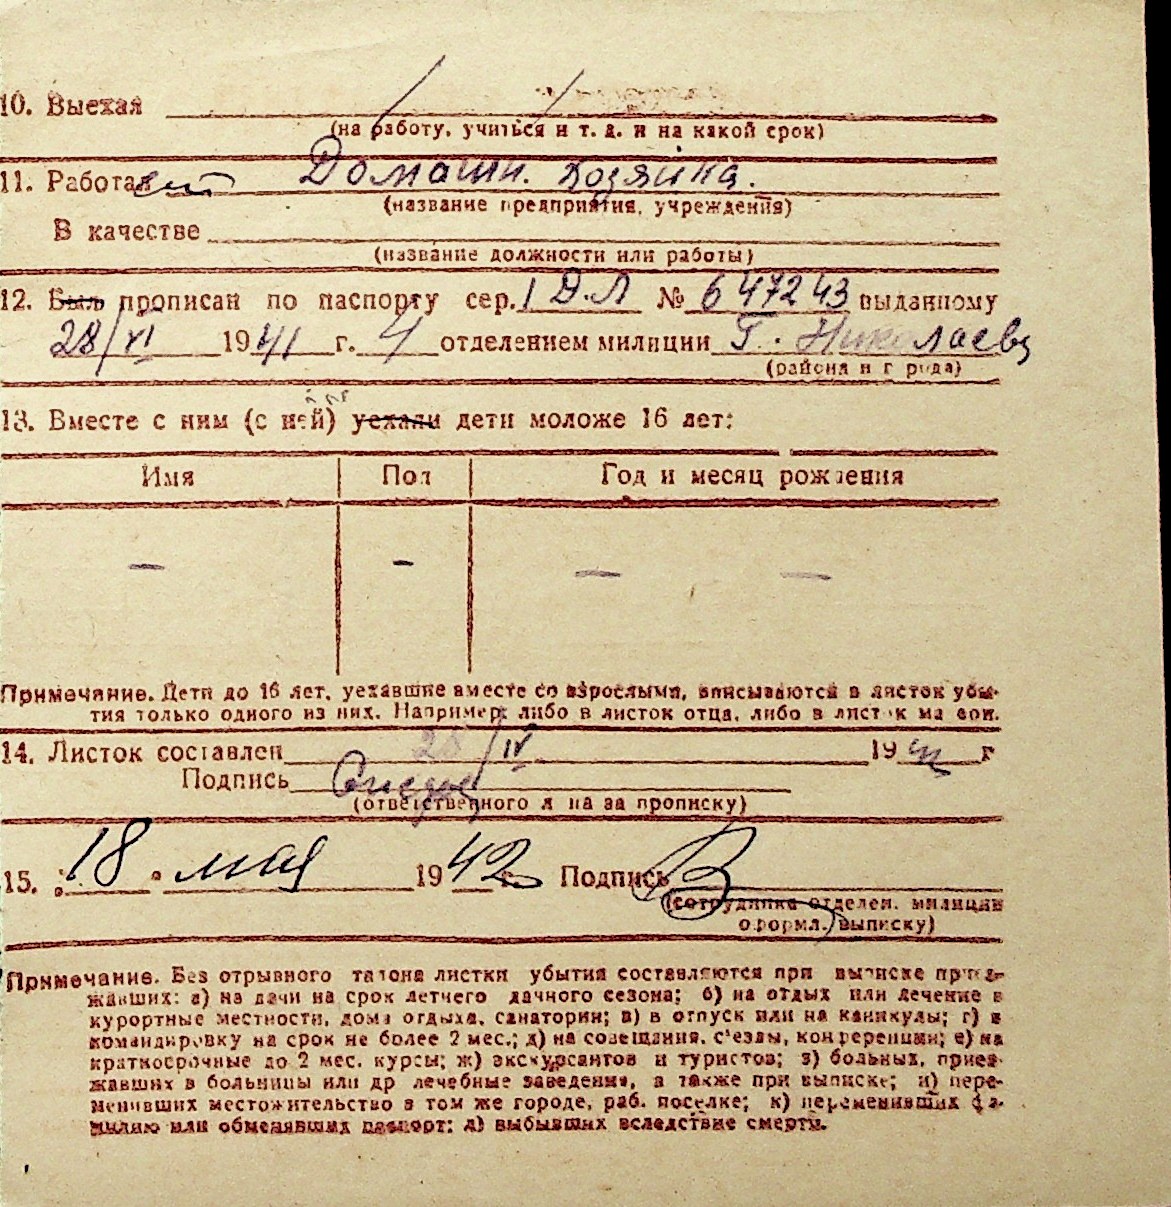 10. Выехал
(на работу, учиться и т. д. и на какой срок)
11. Работает Домашн. хозяйка.
(название предприятия, учреждения)
В качестве
(название должности или работы)
12. Был прописан по паспорту сер. I ДЛ № 647243 выданному
28/VI 1941 г. 4 отделением милиции г. Николаев
(района и города)
13. Вместе с ним (с ней) уехали дети моложе 16 лет:
Имя Пол Год и месяц рождения
— — — —
Примечание. Дети до 16 лет, уехавшие вместе со взрослыми, вписываются в листок убы-
тия только одного из них. Например: либо в листок отца, либо в листок матери.
14. Листок составлен 28/IV 19 г
Подпись
(ответственного лица за прописку)
15. „18“ мая 1942 г. Подпись
(сотрудника отделен. милиции
оформл. выписку)
Примечание. Без отрывного талона листки убытия составляются при выписке приез-
жавших: а) на дачи на срок летнего дачного сезона; б) на отдых или лечение в
курортные местности, дома отдыха, санатории; в) в отпуск или на каникулы; г) в
командировку на срок не более 2 мес.; д) на совещания, с'езды, конференции; е) на
краткосрочные до 2 мес. курсы; ж) экскурсантов и туристов; з) больных, приез-
жавших в больницы или др лечебные заведения, а также при выписке; и) пере-
менивших местожительство в том же городе, раб. поселке; к) переменивших фа-
милию или обменявших паспорт; л) выбывших вследствие смерти.